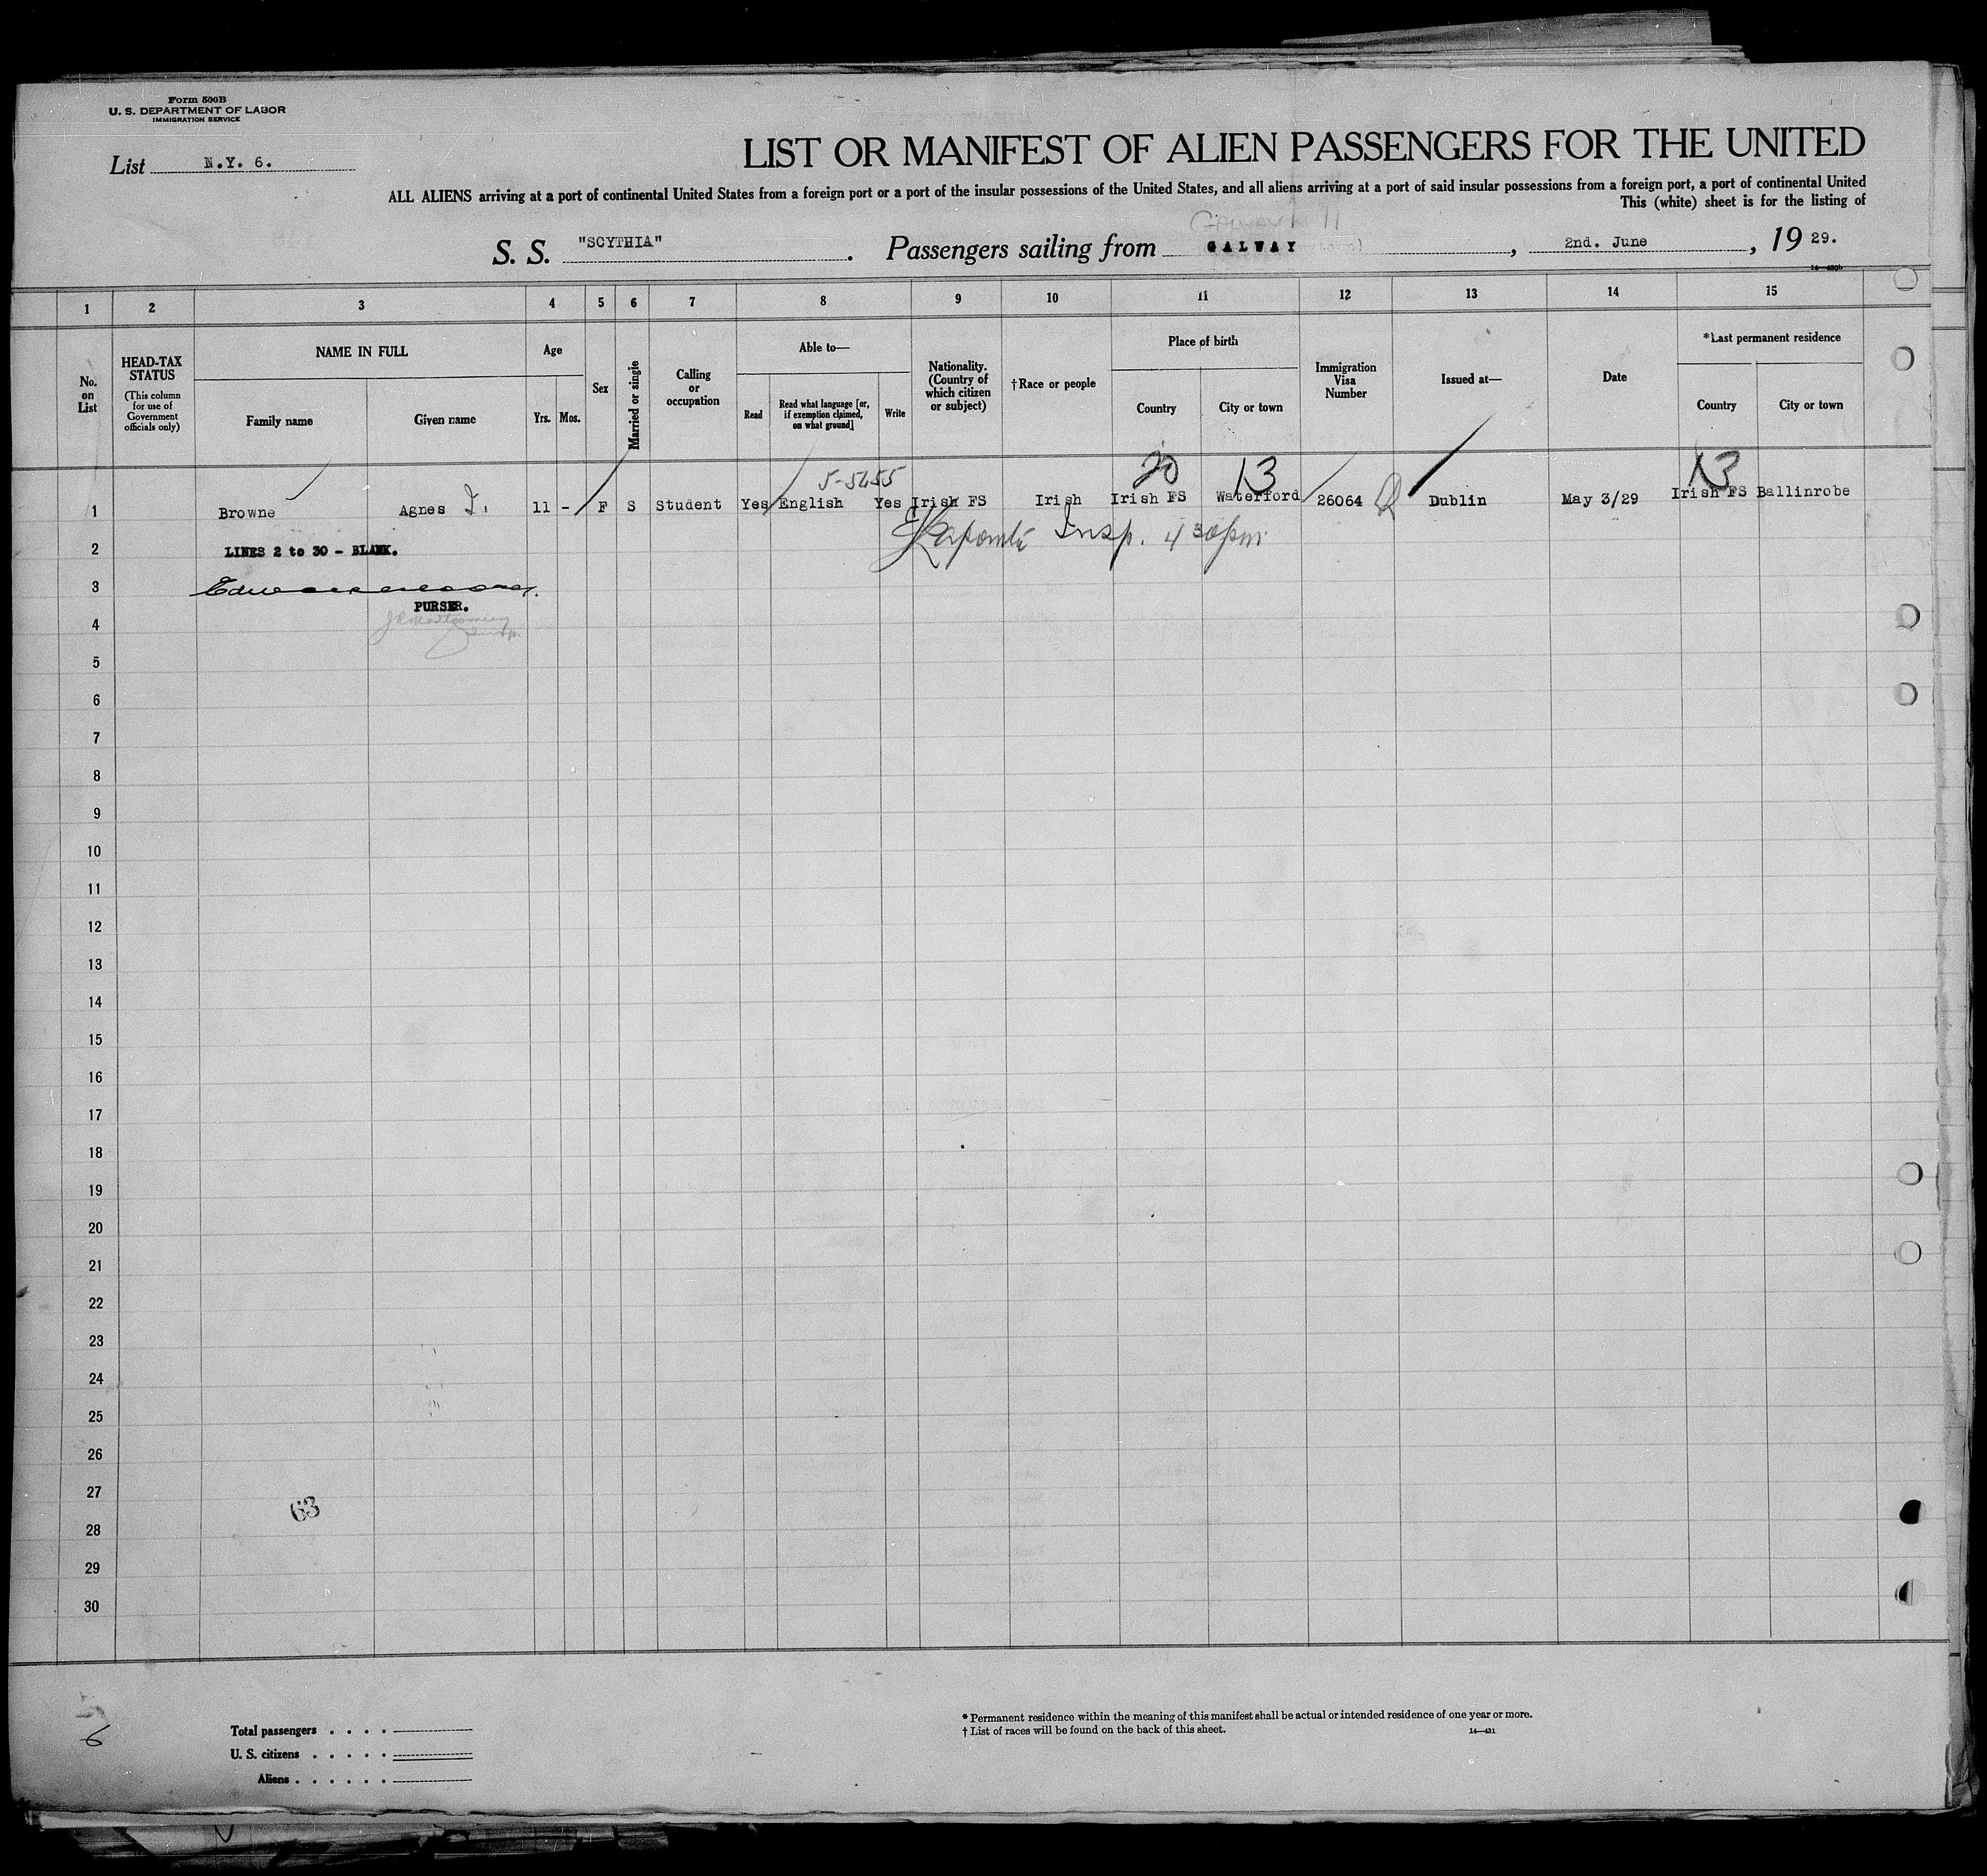 Form 500B
U. S. DEPARTMENT OF LABOR
IMMIGRATION SERVICE
List N.Y. 6.
LIST OR MANIFEST OF ALIEN PASSENGERS FOR THE UNITED
ALL ALIENS arriving at a port of continental United States from a foreign port or a port of the insular possessions of the United States, and all aliens arriving at a port of said insular possessions from a foreign port, a port of continental United
This (white) sheet is for the listing of
S. S. "SCYTHIA". Passengers sailing from GALWAY, 2nd. June, 19 29.
1 2 3 4 5 6 7 8 9 10 11 12 13 14 15
No. on List
HEAD-TAX STATUS
(This column for use of Government officials only)
NAME IN FULL
Family name
Given name
Age
Yrs. Mos.
Sex
Married or single
Calling or occupation
Able to—
Read
Read what language [or, if exemption claimed, on what ground]
Write
Nationality. (Country of which citizen or subject)
†Race or people
Place of birth
Country
City or town
Immigration Visa Number
Issued at—
Date
*Last permanent residence
Country
City or town
5-5455 20 13 13
1 Browne Agnes I. 11 - F S Student Yes English Yes Irish FS Irish Irish FS Waterford 26064 Dublin May 3/29 Irish FS Ballinrobe
Insp. 4 30pm
2 LINES 2 to 30 - BLANK.
3
PURSER.
4
5
6
7
8
9
10
11
12
13
14
15
16
17
18
19
20
21
22
23
24
25
26
27
63
28
29
30
6
Total passengers
U. S. citizens
Aliens
* Permanent residence within the meaning of this manifest shall be actual or intended residence of one year or more.
† List of races will be found on the back of this sheet.
14—431